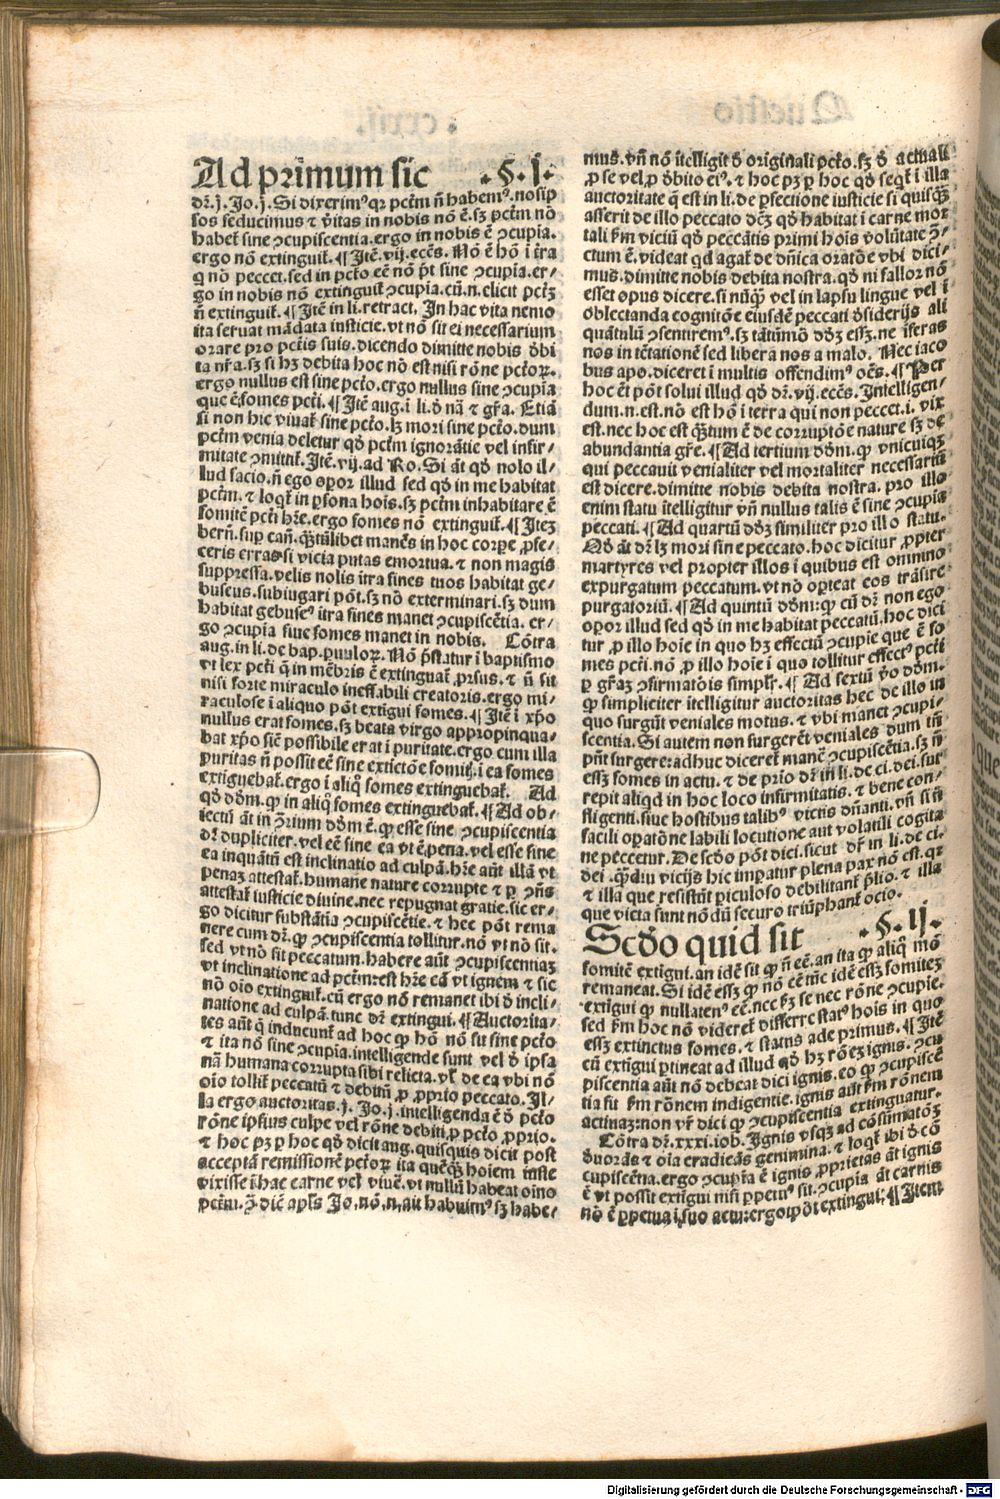 Ad primum sic .§.j.
dr̄.j.Jo.j.Si dixerimꝰ qꝛ pctm̄ ñ habemꝰ.nosip
sos seducimus ⁊ v̄itas in nobis nō ē.sꝫ pctm̄ nō
habet̄ sine ꝯcupiscentia.ergo in nobis ē ꝯcupīa.
ergo nō extinguit̄.¶Itē.vij.eccēs.Nō ē hō ī t̄ra
q̄ nō peccet.sed in pctō eē nō p̄t sine ꝯcupīa.er-
go in nobis nō extinguit̄ ꝯcupīa.cū.n.elicit pctꝫ
ñ extinguit̄.¶Itē in li.retract. In hac vita nemo
ita seruat mādata iusticie.vt nō sit ei necessarium
orare pro pctīs suis.dicendo dimitte nobis dēbi
ta nr̄a.sꝫ si hꝫ debita hoc nō est nisi rōne pctōꝝ.
ergo nullus est sine pctō.ergo nullus sine ꝯcupīa
que ē.fomes pctī.¶Itē aug.ī li.đ nā ⁊ gr̄a. Etiā
si non hic viuat̄ sine pctō.lꝫ mori sine pctō.dum
pctm̄ venia deletur qđ pctm̄ ignorātie vel infir-
mitate ꝯmittit̄.Itē.vij.ad Ro.Si āt qđ nolo il-
lud facio.ñ ego oꝑor illud sed qđ in me habitat
pctm̄.⁊ loqt̄ in ꝑsona hoīs.sꝫ pctm̄ inhabitare ē
fomitē pctī hr̄e.ergo fomes nō extinguit̄.¶Itez
bern̄.suꝑ cañ.q̄ꝫtūlibet manēs in hoc corꝑe ꝓfe-
ceris erras si vicia putas emortua.⁊ non magis
suppressa.velis nolis ītra fines tuos habitat ge-
buseus.subiugari pōt.sꝫ nō exterminari.sꝫ dum
habitat gebuseꝰ ītra fines manet ꝯcupiscētia. er-
go ꝯcupīa siue fomes manet in nobis. Cōtra
aug.in li.de bap.ꝑuuloꝝ.Nō p̄statur ī baptismo
vt lex pctī q̄ in mēbris ē extinguat̄ ꝓrsus.⁊ ñ sit
nisi forte miraculo ineffabili creatoris.ergo mi-
raculose ī aliquo pōt extīgui fomes.¶Itē ī xp̄o
nullus erat fomes.sꝫ beata virgo appropinqua-
bat xp̄o sic̄ possibile erat ī puritate.ergo cum illa
puritas ñ possit eē sine extictōe fomit̄.ī ea fomes
extīguebat̄.ergo ī aliq̄ fomes extinguebat̄. Ad
qđ đōm.ꝙ in aliq̄ fomes extinguebat̄.¶Ad ob-
iectū āt in ꝯ̄rium đōm ē.ꝙ esse sine ꝯcupiscentia
dr̄ dupliciter.vel eē sine ea vt ē.pena.vel esse sine
ea inquātū est inclinatio ad culpā.hr̄e aūt illā vt
penaꝫ attestat̄.humane nature corrupte ⁊ ꝑ ꝯñs
attestat̄ iusticie diuine.nec repugnat gratie.sic er-
go dicitur substātia ꝯcupiscētie.⁊ hec pōt rema
nere cum dr̄.ꝙ ꝯcupiscentia tollitur.nō vt nō sit.
sed vt nō sit peccatum.habere aūt ꝯcupiscentiaꝫ
vt inclinatione ad pctm̄:est hr̄e eā vt ignem ⁊ sic
nō oīo extinguit̄.cū ergo nō remanet ibi đ incli-
natione ad culpā.tunc dr̄ extingui.¶Auctorita-
tes aūt q̄ inducunt̄ ad hoc ꝙ hō nō sit sine pctō
⁊ ita nō sine ꝯcupīa.intelligende sunt vel đ ipsa
nā humana corrupta sibi relicta.vl̄ de ea vbi nō
oīo tollit̄ peccatū ⁊ debitū ꝓ ꝓprio peccato.Il-
la ergo auctoritas.j.Jo.j.intelligenda ē đ pctō
rōne ipsius culpe vel rōne debiti.ꝓ pctō ꝓprio.
⁊ hoc pꝫ ꝑ hoc qđ dicit aug.quisquis dicit post
acceptā remissionē pctōꝝ ita quēq̄ꝫ hoīem iuste
vixisse ī hac carne vel viuē.vt nullū habeat oīno
pctm̄.ꝯ̄dic̄ apl̄s Jo.nō.n.ait habuimꝰ sꝫ habe-
mus.vñ nō ītelligit đ originali pctō.sꝫ đ actuali
ꝓ se vel ꝓ đbito eiꝰ.⁊ hoc pꝫ ꝑ hoc qđ seqt̄ ī illa
auctoritate q̄ est in li.de ꝑfectione iusticie si quisq̄ꝫ
asserit de illo peccato dc̄ꝫ qđ habitat ī carne mor
tali ẜm viciū qđ peccātis primi hoīs volūtate ꝯ̄-
ctum ē.videat qd agat̄ de dn̄ica oratōe vbi dici-
mus.dimitte nobis debita nostra.qđ ni fallor nō
esset opus dicere.si nūq̄ꝫ vel in lapsu lingue vel ī
oblectanda cognitōe eiusdē peccati đsiderijs ali
quātulū ꝯsentiremꝰ.sꝫ tātūmō đōꝫ eēꝫ.ne īferas
nos in tētationē sed libera nos a malo. Nec iaco
bus apo.diceret ī multis offendimꝰ oēs.¶Per
hoc ēt pōt solui illud qđ dr̄.vij.eccēs.Intelligen-
dum.n.est.nō est hō ī terra qui non peccet.i. vix
est.nec hoc est q̄ꝫtum ē de corruptōe nature sꝫ de
abundantia gr̄e.¶Ad tertium đōm.ꝙ vnicuiqꝫ
qui peccauit venialiter vel mortaliter necessariū
est dicere.dimitte nobis debita nostra. pro illo
enim statu ītelligitur vñ nullus talis ē sine ꝯcupīa
peccati.¶Ad quartū đōꝫ similiter pro illo statu.
Qđ āt dr̄ lꝫ mori sine peccato.hoc dicitur ꝓpter
martyres vel propter illos ī quibus est omnino
expurgatum peccatum.vt nō oꝑteat eos trāsire
purgatoriū.¶Ad quintū đōm:ꝙ cū dr̄ non ego
oꝑor illud sed qđ in me habitat peccatū.hoc dici
tur ꝓ illo hoīe in quo hꝫ effectū ꝯcupīe que ē fo
mes pctī.nō ꝓ illo hoīe ī quo tollitur effectꝰ pctī
ꝑ gr̄aꝫ ꝯfirmatōis simplr̄.¶Ad sextū v̄o đōm.
ꝙ simpliciter ītelligitur auctoritas hec de illo in
quo surgūt veniales motus.⁊ vbi manet ꝯcupi-
scentia.Si autem non surgerēt veniales dum tn̄
pn̄t surgere:adhuc diceret̄ manē ꝯcupiscētia.sꝫ ñ
eēꝫ fomes in actu.⁊ de p̄rio dr̄ in li.de ci.dei.sur
repit aliqd in hoc loco infirmitatis.⁊ bene con-
fligenti.siue hostibus talibꝰ victis dn̄anti.vñ si ñ
facili oꝑatōne labili locutione aut volatili cogita
ne peccetur.De scđo pōt dici.sicut dr̄ in li.de ci.
dei.q̄ꝫdiu vicijs hic imꝑatur plena pax nō est.qꝛ
⁊ illa que resistūt ꝑiculoso debilitant̄ p̄lio.⁊ illa
que victa sunt nō dū securo triūphant̄ ocio.
Scđo quid sit .§.ij.
fomitē extīgui.an idē sit ꝙ ñ eē.an ita ꝙ aliq̄ mō
remaneat.Si idē eēꝫ ꝙ nō eē tūc idē eēꝫ fomitez
extīgui ꝙ nullatenꝰ eē.nec hꝫ se nec rōne ꝯcupīe.
sed ẜm hoc nō videret̄ differre statꝰ hoīs in quo
eēꝫ extinctus fomes.⁊ status ade primus.¶Itē
cū extīgui ꝑtineat ad illud qđ hꝫ rōeꝫ ignis.ꝯcu
piscentia aūt nō debeat dici ignis.eo ꝙ ꝯcupiscē
tia sit ẜm rōnem indigentie.ignis aūt ẜm rōnem
actiuaꝫ:non vr̄ dici ꝙ ꝯcupiscentia extinguatur.
Cōtra dr̄.xxxi.iob.Ignis vsqꝫ ad cōsūmatōꝫ
đuorās ⁊ oīa eradicās genimina.⁊ loqt̄ ibi đ cō
cupiscētia.ergo ꝯcupīa ē ignis ꝓprietas āt ignis
ē vt possit extīgui nisi ꝑpetuꝰ sit.ꝯcupīa āt carnis
nō ē ꝑpetua ī suo actu:ergo pōt extingui.¶Item
Digitalisierung gefördert durch die Deutsche Forschungsgemeinschaft - DFG